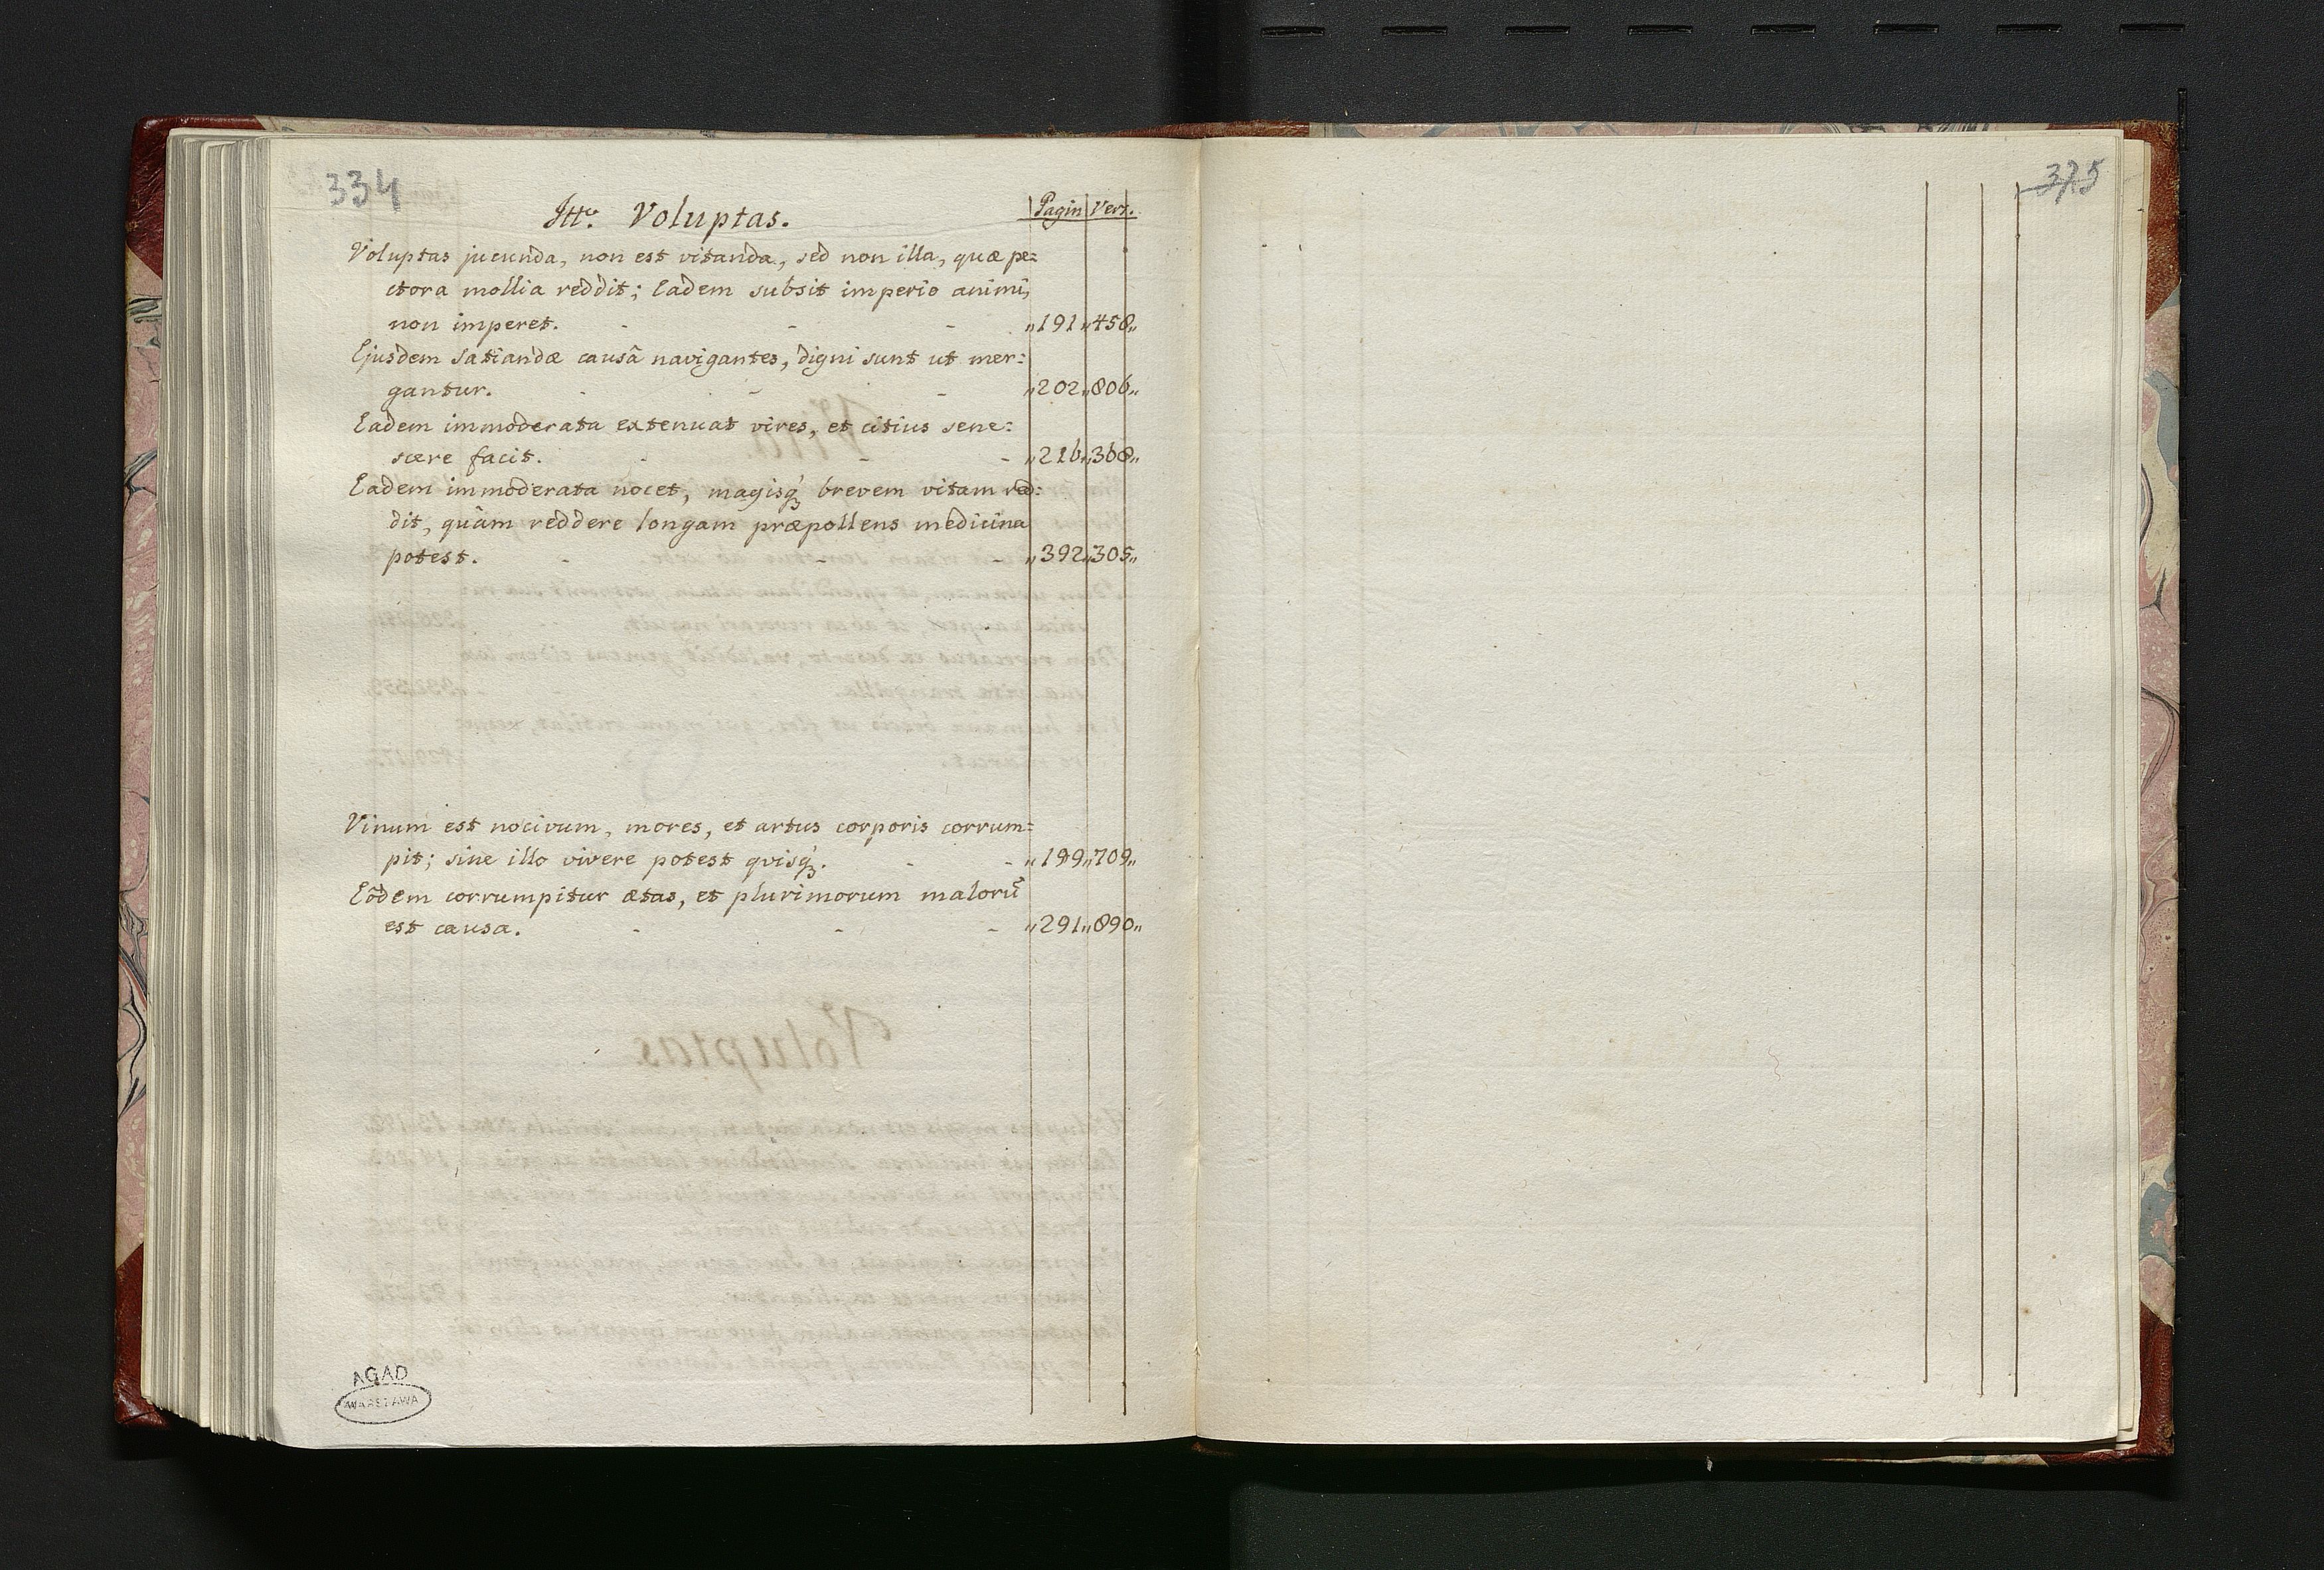 334
Itt. Voluptas.
Pagin Vers.
Voluptas jucunda, non est vitanda, sed non illa, quæ pe=
ctora mollia reddit; Eadem subsit imperio animi,
non imperet. - - - „191„458„
Ejusdem satiandæ causâ navigantes, digni sunt ut mer=
gantur. - - - „202„806„
Eadem immoderata extenuat vires, et citius sene=
scere facit. - - - „216„368„
Eadem immoderata nocet, magisq́ʒ brevem vitam red=
dit, quàm reddere longam præpollens medicina
potest. - - - „392„305„
Vinum est nocivum, mores, et artus corporis corrum=
pit; sine illo vivere potest qvisq́ʒ. - - „199„709„
Eôdem corrumpitur ætas, et plurimorum malorũ
est causa. - - - „291„890„
AGAD
WARSZAWA